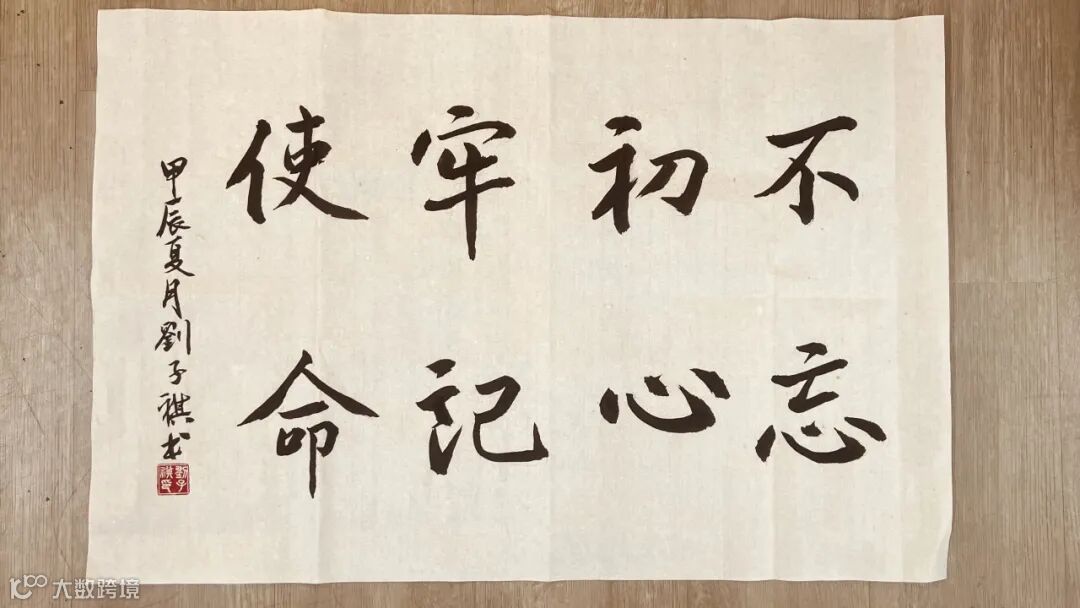 不忘
初心
牢记
使命
甲辰夏月劉子祺书
劉子祺印
大数跨境